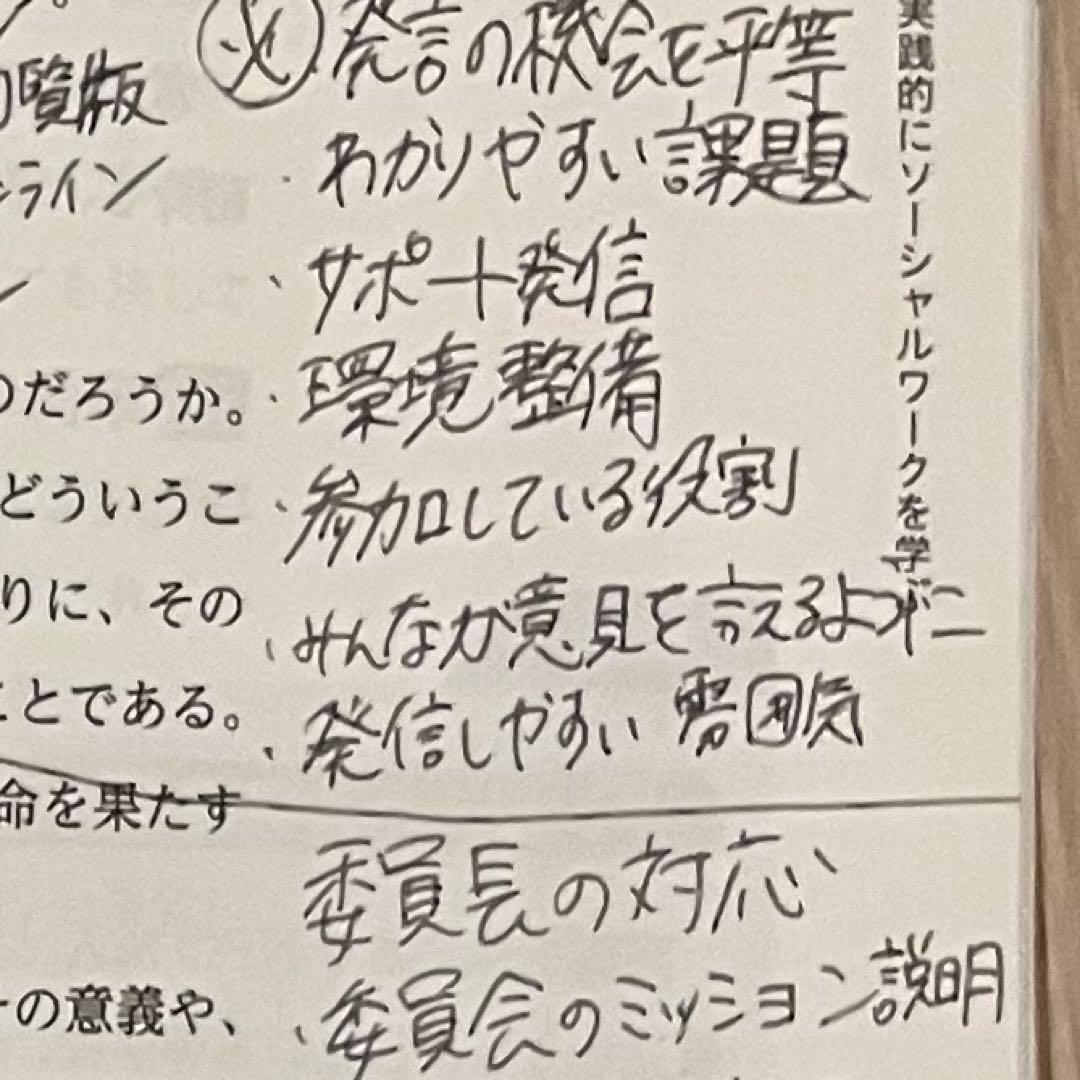 必 発言の機会を平等
覧版
わかりやすい課題
ライン
・サポート発信
・環境整備
のだろうか。
・参加している役割
どういうこ
・みんなが意見を言えるように
りに、その
・発信しやすい雰囲気
ことである。
命を果たす
委員長の対応
・委員会のミッション説明
の意義や、
実践的にソーシャルワークを学